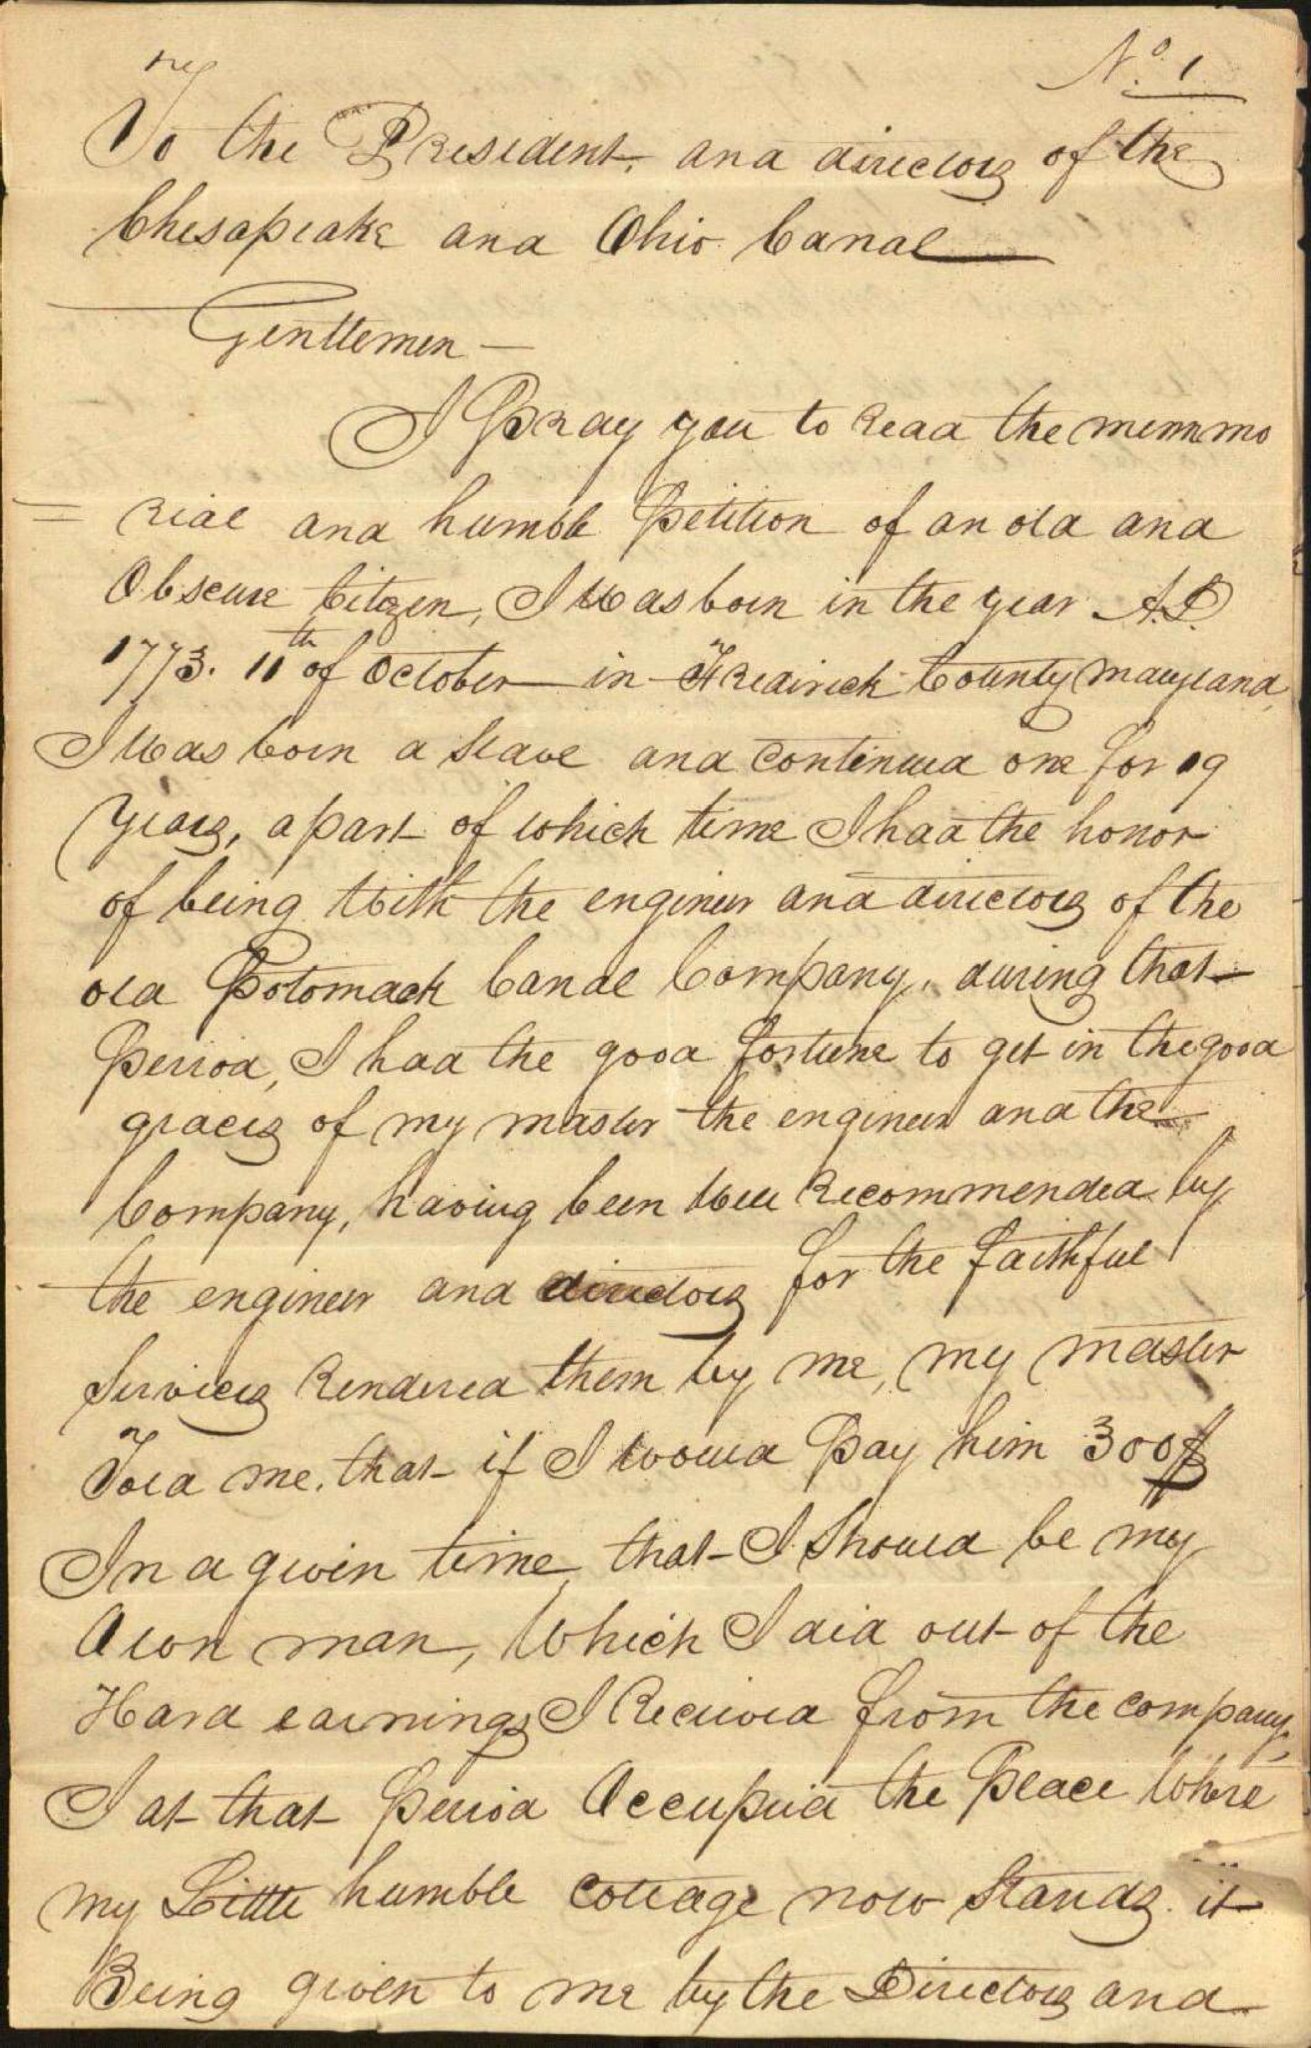 No. 1
To the President, and directors of the
Chesapeake and Ohio Canal
Genttemen —
I Pray you to Read the memmo
= rial and humble Petition of an old and
Obscure Citizen, I Was born in the year A.D.
1773. 11th of October in Fredirick County maryland,
I Was born a slave and continued one for 19
years, a part of which time I had the honor
of being With the engineer and directors of the
old Potomack Canal Company, during that
Period, I had the good fortune to get in the good
graces of my master the engineer and the
Company, having been Well Recommended by
the engineer and directors for the faithful
Services Rendered them by me, my master
Told me, that if I would Pay him 300$
In a given time, that I should be my
Own man, Which I did out of the
Hard earnings I Received from the company,
I at that Period Occupied the Place Where
my Little humble cottage now Stands. it
Being given to me by the Directors and